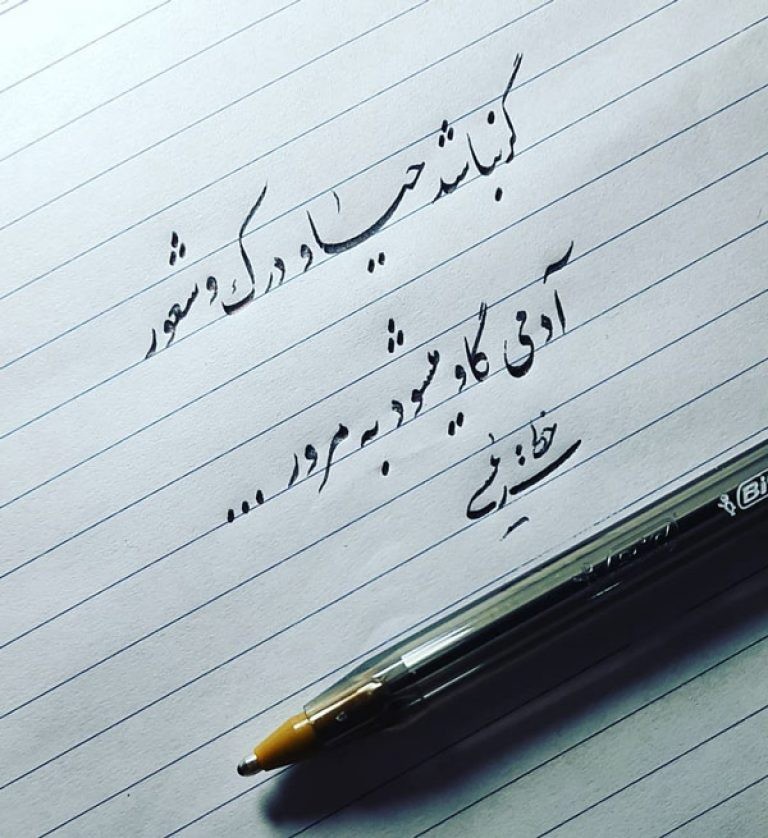 گر نباشد حیا و درک و شعور
آدمی گاو میشود به مرور ...
Bi